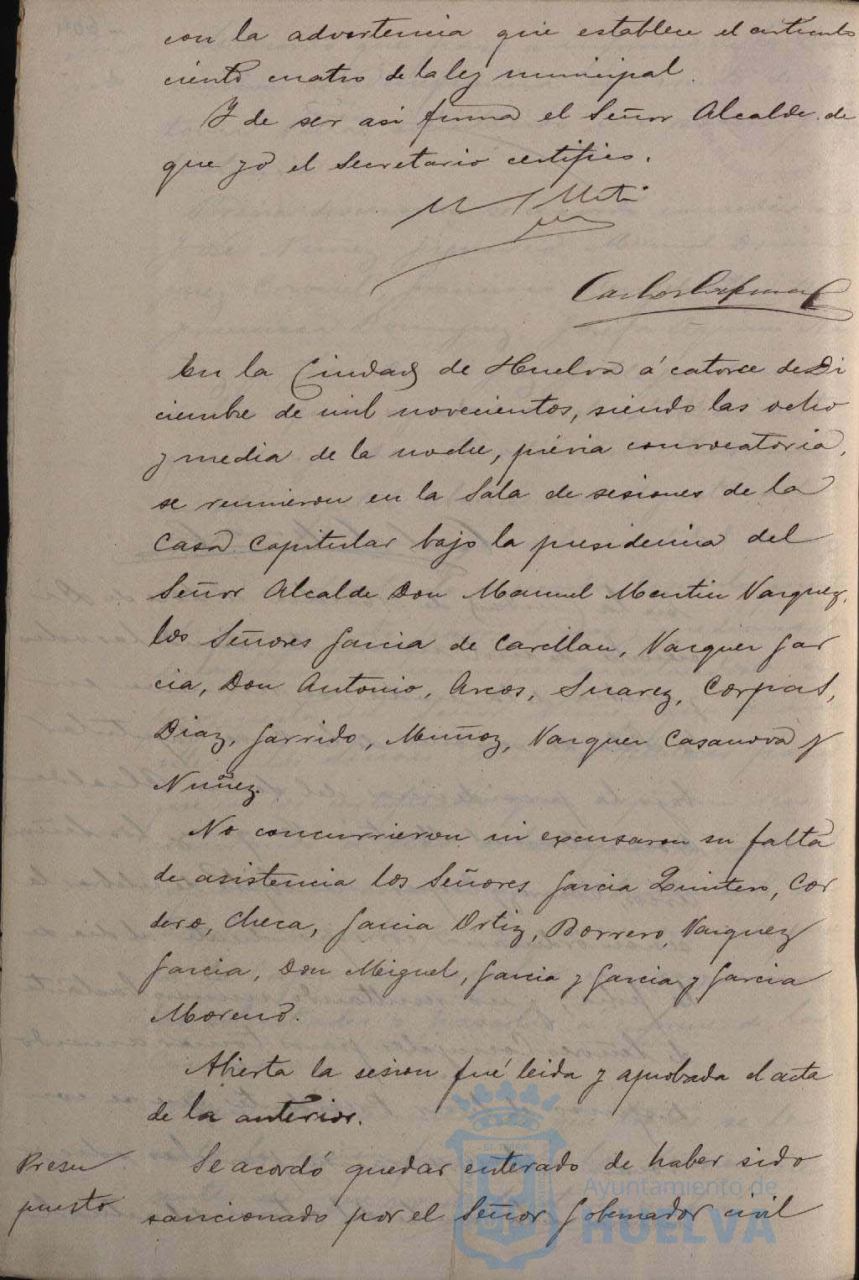 con la advertencia que establece el artículo
ciento cuatro de la ley municipal.
Y de ser asi firma el Señor Alcalde de
que yo el Secretario certifico.
En la Ciudad de Huelva á catorce de Di
ciembre de mil novecientos, siendo las ocho
y media de la noche, prévia convocatoria,
se reunieron en la Sala de sesiones de la
Casa Capitular bajo la presidencia del
Señor Alcalde Don Manuel Martin Vazquez,
los Señores Garcia de Carellan, Vazquez Gar
cia, Don Antonio, Arcos, Suarez, Corpas,
Diaz, Garrido, Muñoz, Vazquez Casanova y
Nuñez.
No concurrieron ni excusaron su falta
de asistencia los Señores Garcia Quintero, Cor
dero, Checa, Garcia Ortiz, Borrero, Vazquez
Garcia, Don Miguel, Garcia y Garcia y Garcia
Moreno.
Abierta la sesion fué leida y aprobada el acta
de la anterior.
Presu
puesto
Se acordó quedar enterado de haber sido
sancionado por el Señor Gobernador civil
Ayuntamiento de
HUELVA